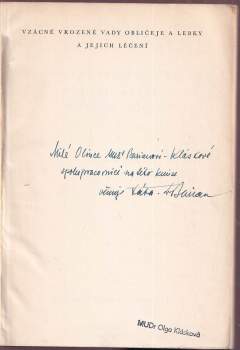 VZÁCNÉ VROZENÉ VADY OBLIČEJE A LEBKY
A JEJICH LÉČENÍ
Milé Olince
Kláskové
spolupracovnici na této knize
věnuje
MUDr. Olga Klásková